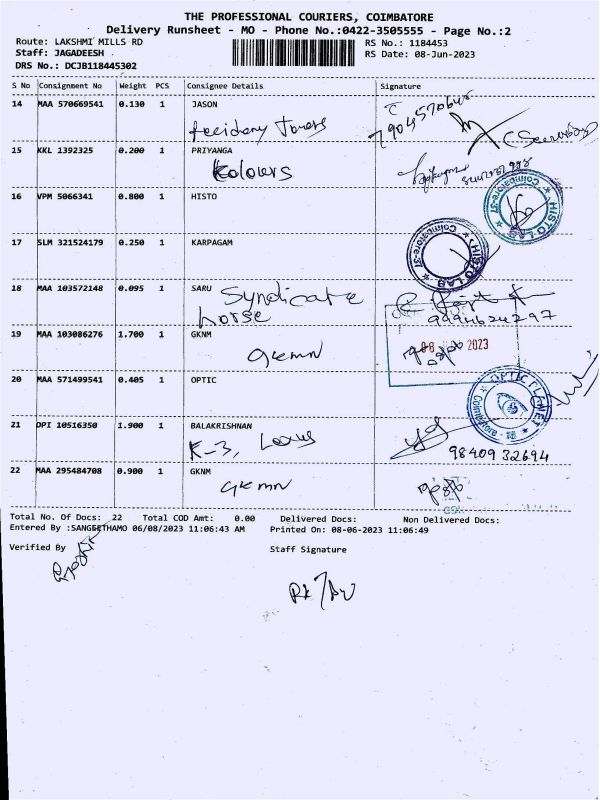 THE PROFESSIONAL COURIERS, COIMBATORE
Delivery Runsheet - MO - Phone No.:0422-3505555 - Page No.:2
Route: LAKSHMI MILLS RD RS No.: 1184453
Staff: JAGADEESH RS Date: 08-Jun-2023
DRS No.: DCJB118445302
S No Consignment No Weight PCS Consignee Details Signature
14 MAA 570669541 0.130 1 JASON
Towers
15 KKL 1392325 0.200 1 PRIYANGA
Kolours
16 VPM 5066341 0.800 1 HISTO
HISTO LAB Coimbatore-37
17 SLM 321524179 0.250 1 KARPAGAM
HISTO LAB Coimbatore-37
18 MAA 103572148 0.095 1 SARU Syndicate
horse 9994624297
19 MAA 103086276 1.700 1 GKNM
GKMN 08 2023
20 MAA 571499541 0.405 1 OPTIC
21 OPI 10516350 1.900 1 BALAKRISHNAN
K-3, Lexus 98409 32694
22 MAA 295484708 0.900 1 GKNM
GKMN
Total No. Of Docs: 22 Total COD Amt: 0.00 Delivered Docs: Non Delivered Docs:
Entered By :SANGEETHAMO 06/08/2023 11:06:43 AM Printed On: 08-06-2023 11:06:49
Verified By Staff Signature